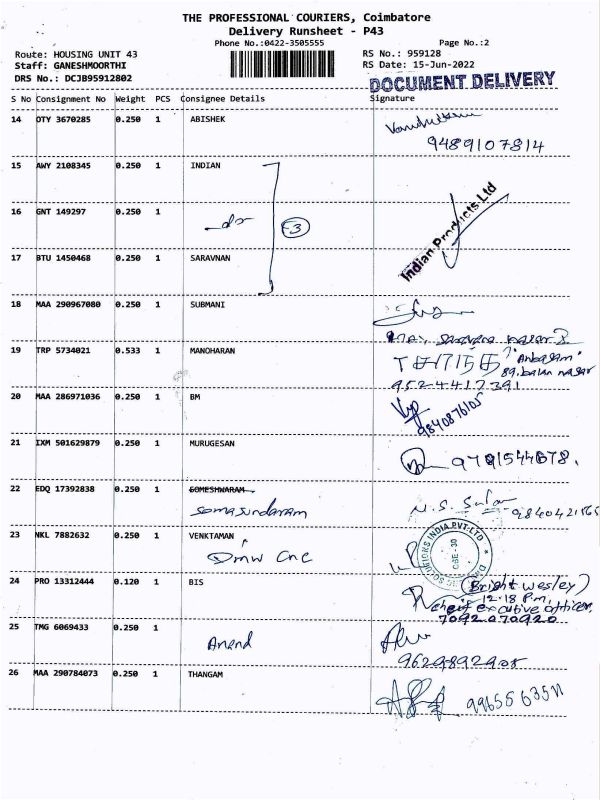 THE PROFESSIONAL COURIERS, Coimbatore
Delivery Runsheet - P43
Phone No.:0422-3505555 Page No.:2
Route: HOUSING UNIT 43 RS No.: 959128
Staff: GANESHMOORTHI RS Date: 15-Jun-2022
DRS No.: DCJB95912802 DOCUMENT DELIVERY
S No Consignment No Weight PCS Consignee Details Signature
14 OTY 3670285 0.250 1 ABISHEK
9489107814
15 AWY 2108345 0.250 1 INDIAN
Indian Products Ltd
16 GNT 149297 0.250 1 -do- 3
17 BTU 1450468 0.250 1 SARAVNAN
18 MAA 290967080 0.250 1 SUBMANI
19 TRP 5734021 0.533 1 MANOHARAN
9524417391
20 MAA 286971036 0.250 1 BM
9840876105
21 IXM 501629879 0.250 1 MURUGESAN
9791544678.
22 EDQ 17392838 0.250 1 GOMESHWARAM
Somasundaram
23 NKL 7882632 0.250 1 VENKTAMAN
DMW CNC
24 PRO 13312444 0.120 1 BIS (Bright Wesley)
12.18 P.m,
cheif executive officer,
7092070920
25 TMG 6069433 0.250 1
Anand
26 MAA 290784073 0.250 1 THANGAM